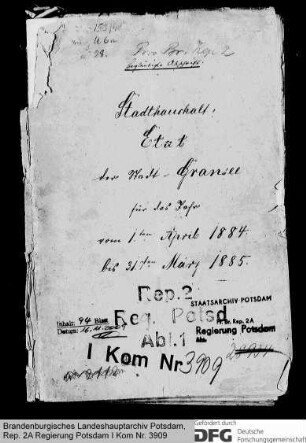 Stadthaushalts-
Etat
der Stadt Gransee
für das Jahr
vom 1ten April 1884
bis 31ten März 1885.
Rep. 2
STAATSARCHIV POTSDAM
Pr. Br. Rep. 2A
Regierung Potsdam
Inhalt: 94 Blatt
Datum:
Reg. Potsd
Abt. 1
I Kom Nr. 3909
Brandenburgisches Landeshauptarchiv Potsdam,
Rep. 2A Regierung Potsdam I Kom Nr. 3909
Gefördert durch
DFG Deutsche
Forschungsgemeinschaft